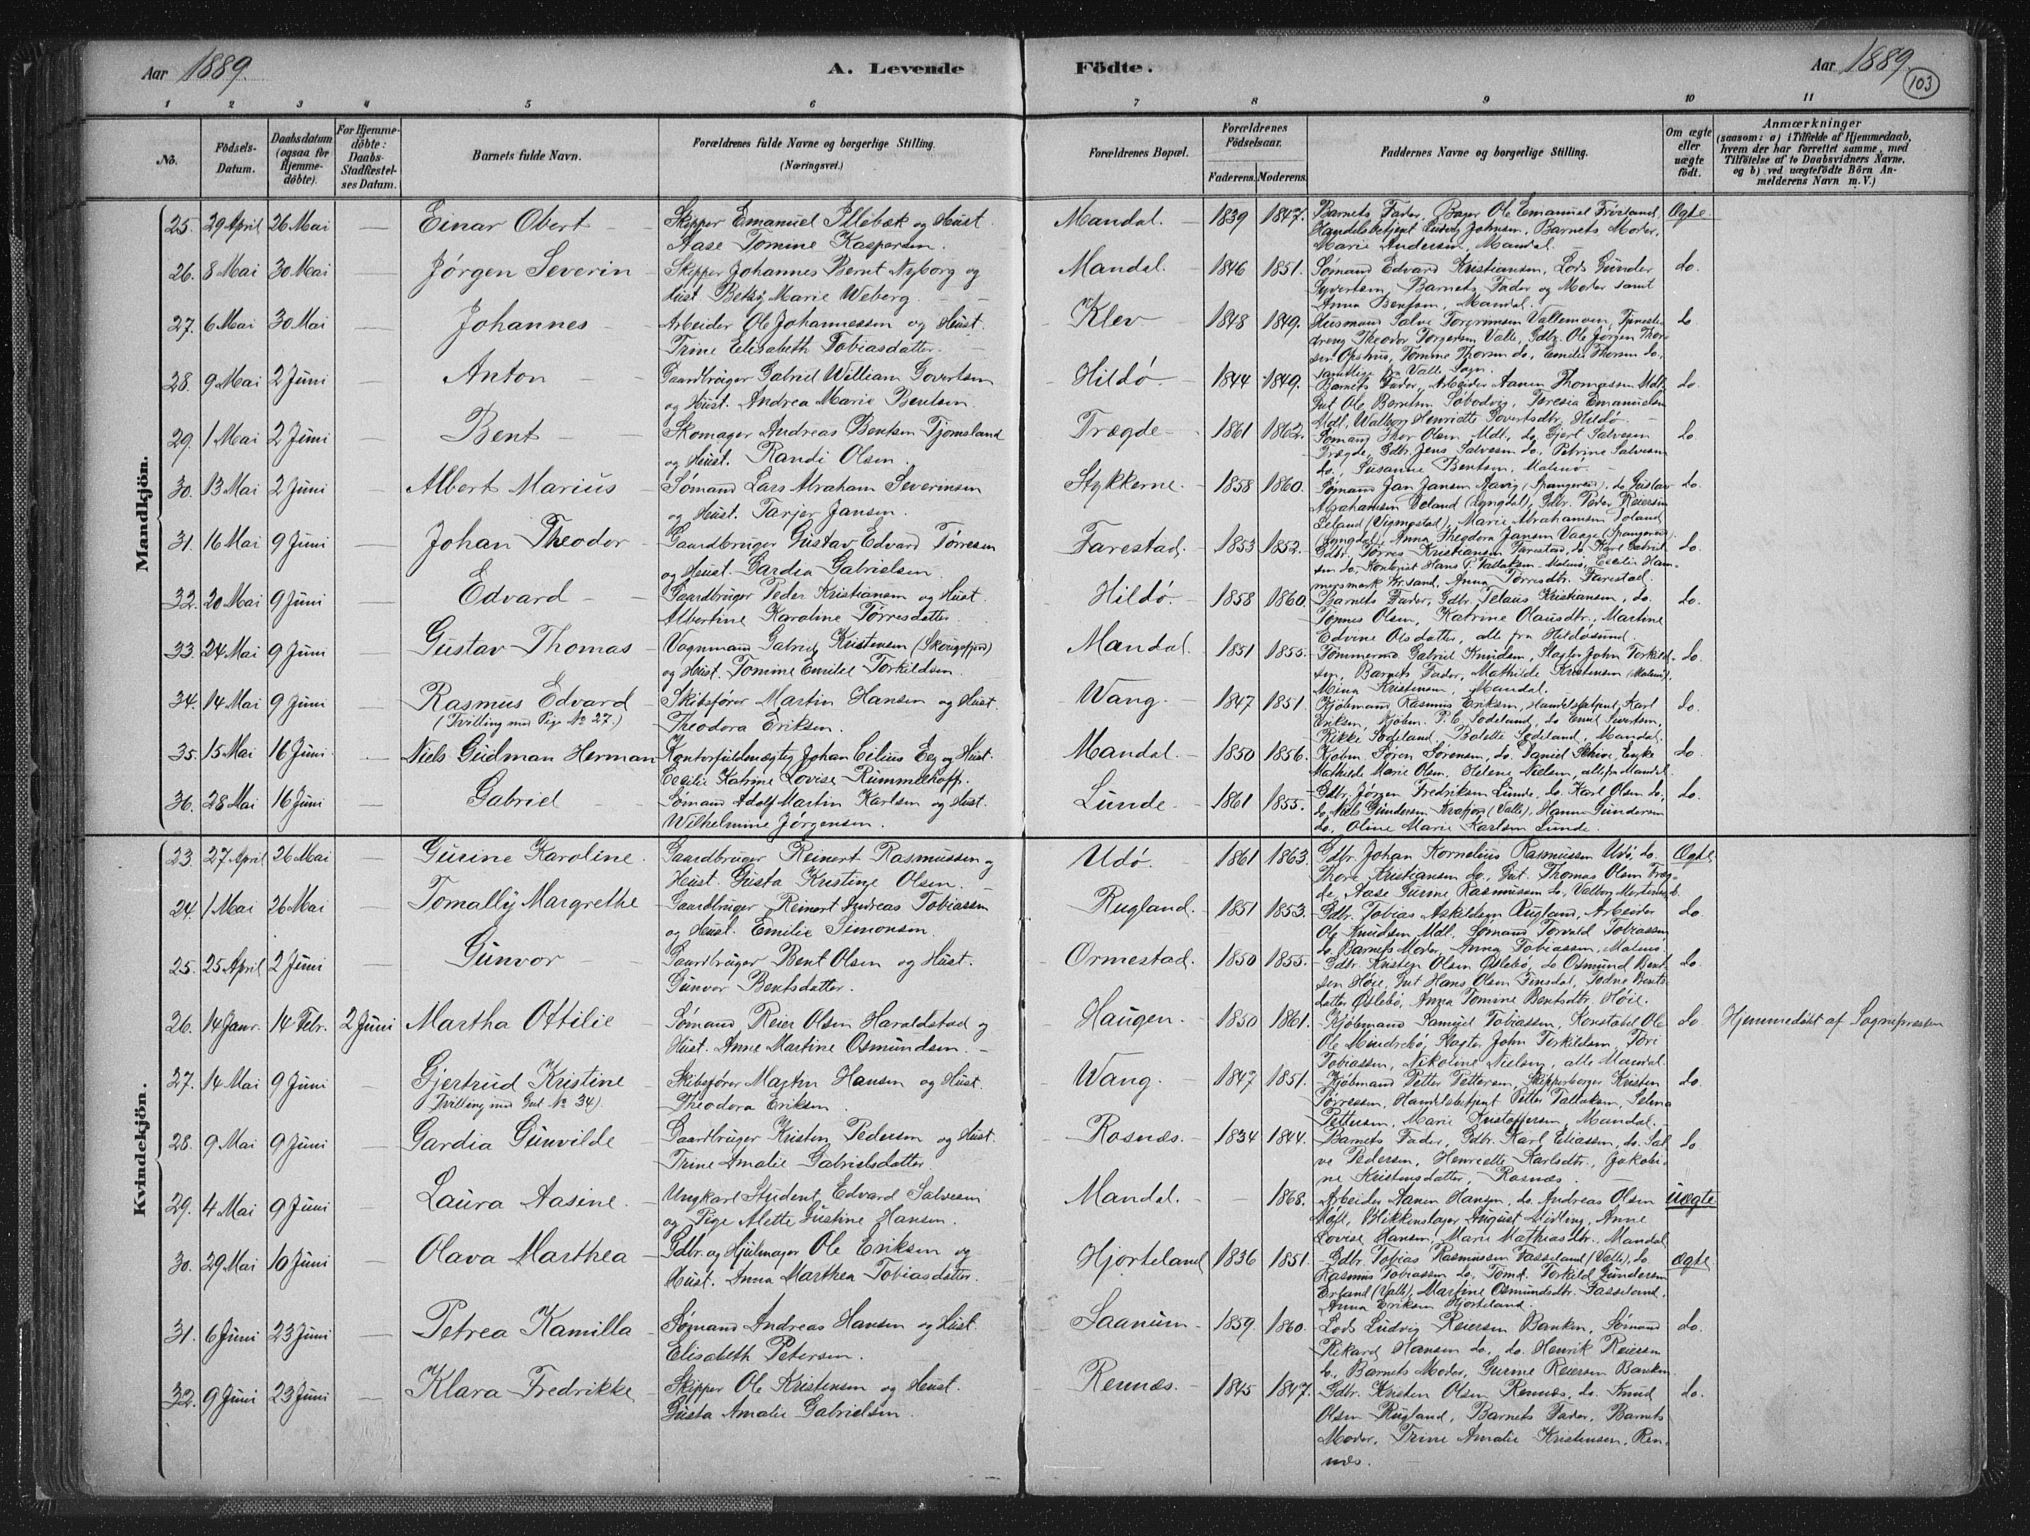 Aar 1889.
A. Levende Födte.
Aar 1889.
103
1 2 3 4 5 6 7 8 9 10 11
No.
Födsels-Datum.
Daabsdatum (ogsaa for Hjemme-döbte).
For Hjemme-döbte: Daabs-Stadfæstel-ses Datum.
Barnets fulde Navn.
Forældrenes fulde Navne og borgerlige Stilling. (Næringsvei.)
Forældrenes Bopæl.
Forældrenes Födselsaar.
Faderens. Moderens.
Faddernes Navne og borgerlige Stilling.
Om ægte eller uægte født.
Anmærkninger
(saasom: a) i Tilfælde af Hjemmedaab, hvem der har forrettet samme, med Tilföielse af to Daabsvidners Navne, og b) ved uægtefödte Börn An-melderens Navn m. V.)
Mandkjön.
25. 29 April 26 Mai — Einar Obert — Skipper Emanuel Illebæk og Hust. Mandal. 1839 1847. Barnets Fader, Bager Ole Emanuel Frøisland, Ægte
Aase Tomine Kaspersen. Handelsbetjent Ludvig Johnsen, Barnets Moder,
Marie Andersen, Mandal.
26. 8 Mai 30 Mai — Jørgen Severin — Skipper Johannes Bernt Nyborg og Mandal. 1846 1851. Sømand Edvard Kristiansen, Lods Gunder do.
Hust. Betsy Marie Weberg. Syvertsen, Barnets Fader og Moder samt
Anna Bentsen, Mandal.
27. 6 Mai 30 Mai — Johannes — Arbeider Ole Johannessen og Hust. Klev 1848 1849. Husmand Salve Torgrimsen Vallemoen, Tjeneste- do
Trine Elisabeth Tobiasdatter. dreng Theodor Torgersen Valle, Gdbr. Ole Jørgen Thor-
sen Opstrus, Tomine Thorsen do, Emilie Thorsen do.
samtlige fra Valle Sogn.
28. 9 Mai 2 Juni — Anton — Gaardbruger Gabriel William Govertsen Hildø 1844 1849. Barnets Fader, Arbeider Aanen Thomassen Mdl. do.
og Hust. Andrea Marie Bentsen. Gut Ole Berntsen Sobodvig, Teresia Emanuelsen
Mdl, Walborg Henriette Govertsdtr, Hildø.
29. 1 Mai 2 Juni — Bent — Skomager Andreas Bentsen Tjomsland Trægde 1861 1862. Sømand Thor Olsen Mdl, do. Gjert Salvesen do.
og Hust. Randi Olsen. Trægde, Gdbr. Jens Salvesen do, Petrine Salvesen
do, Susanne Bentsen, Malmø.
30. 13 Mai 2 Juni — Albert Marius — Sømand Lars Abraham Severinsen Stykkerne. 1858 1860. Sømand Jan Jansen Aavig (Spangereid), do. Gustav do.
og Hust. Tarjer Jansen. Abrahamsen Deland (Lyngdal), Gdbr. Peder Reiersen
Leland (Vigmostad), Marie Abrahamsen Foland
(Lyngdal), Anna Theodora Jansen Vaage (Spangereid).
31. 16 Mai 9 Juni — Johan Theodor — Gaardbruger Gustav Edvard Tørresen Farestad. 1853 1852. Gdbr. Tørres Kristiansen Farestad, do Karl Gabriel- do.
og Hust. Gardea Gabrielsen. sen do, Hans P. Tallaksen Malmø, Cecilie Ham-
mersmark Kr.sand, Anna Tørresdtr. Farestad.
32. 20 Mai 9 Juni — Edvard — Gaardbruger Peder Kristiansen og Hust. Hildø. 1858 1860 Barnets Fader, Gdbr. Kristiansen, do. do.
Albertine Karoline Tørresdatter. Tønnes Olsen, Katrine Olausdtr, Martine
Edvine Olsdatter, alle fra Hildøsund.
33. 24 Mai 9 Juni — Gustav Thomas — Vognmand Gabriel Kristensen (Skougsfjord) Mandal. 1851 1855. Tømmermd Gabriel Knudsen, Slagter John Torkild- do.
og Hust. Tomine Emilie Torkildsen. sen, Barnets Fader, Mathilde Kristensen (Malmø).
Mina Kristensen, Mandal.
34. 14 Mai 9 Juni — Rasmus Edvard Skibsfører Martin Hansen og Hust. Wang. 1847 1851. Kjøbmand Rasmus Eriksen, Handelsbetjent Karl do.
(Tvilling med Pige No 27.) Theodora Eriksen. Eriksen, Kjøbm. P. C. Sodeland, do Emil Sivertsen,
Rikke Sodeland, Bolette Sodeland, Mandal.
35. 15 Mai 16 Juni — Niels Gudman Herman Kontorfuldmægtig Johan Celius Eeg og Hust. Mandal. 1850 1856. Kjøbm. Søren Sørensen, do. Daniel Schive, Enke do.
Cecilie Katrine Lovise Rummelhoff. Mathilde Marie Olsen, Helene Nielsen, alle fra Mandal.
36. 28 Mai 16 Juni — Gabriel — Sømand Adolf Martin Karlsen og Hust. Lunde 1861 1855. Gdbr. Jørgen Fredriksen Lunde, do. Karl Olsen do, do.
Wilhelmine Jørgensen. do, Niels Gundersen (Valle), Hanna Gundersen
do, Oline Marie Karlsen Lunde.
Kvindekjön.
23. 27 April 26 Mai — Gurine Karoline. Gaardbruger Reinert Rasmussen og Udø. 1861 1863. Gdbr. Johan Kornelius Rasmussen Udø, do. Ægte
Hust. Gusta Kristine Olsen. Thore Kristiansen do, Gut. Thomas Olsen Træg-
de, Aase Gurine Rasmussen do, Valborg Mortensen do.
24. 1 Mai 26 Mai — Tomally Margrethe Gaardbruger Reinert Andreas Tobiassen Rugland. 1851 1853. Gdbr. Tobias Askildsen Rugland, Arbeider do.
og Hust. Emilie Simonsen. Ole Knudsen Mdl. Sømand Torvald Tobiassen
do, Barnets Moder, Anna Tobiassen, Malmø.
25. 25 April 2 Juni — Gunvor — Gaardbruger Bent Olsen og Hust. Ormestad. 1850 1855. Gdbr. Kristen Olsen Øslebø, do Osmund Bent- do.
Gunvor Bentsdatter. sen Høie, Gut Hans Olsen Finsdal, Todne Bents-
datter Øslebø, Anna Tomine Bentsdtr, Høie.
26. 14 Janr. 14 Febr. 2 Juni Martha Ottilie Sømand Reier Olsen Haraldstad og Haugen. 1850 1861. Kjøbmand Samuel Tobiassen, Konstabel Ole do Hjemmedøbt af Sognepræsten
Hust. Anne Martine Osmundsen. Ole Mindrebø, Slagter John Torkildsen, Tori
Tobiassen, Nikoline Nielsen, alle Mandal.
27. 14 Mai 9 Juni — Gjertrud Kristine Skibsfører Martin Hansen og Hust. Wang. 1847 1851. Kjøbmand Petter Pettersen, Skipperborger Kristen do.
(Tvilling med Gut No 34). Theodora Eriksen. Tørressen, Handelsbetjent Peter Tallaksen, Selma
Pettersen, Marie Kristoffersen, Mandal.
28. 9 Mai 9 Juni — Gardia Gunvilde Gaardbruger Kristen Pedersen og Hust. Rosnæs. 1834 1844. Barnets Fader, Gdbr. Karl Eliassen, do. Sal- do
Trine Amalie Gabrielsdatter. ve Pedersen, Henriette Karlsdtr, Jakobi-
ne Kristensdatter, Rosnæs.
29. 4 Mai 9 Juni — Laura Aasine. Ungkarl Student Edvard Salvesen Mandal. — 1868. Arbeider Aanen Hansen, do. Andreas Olsen Uægte
og Pige Alette Gustine Hansen. Møll, Blikkenslager August Midling, Anne
Lovise Hansen, Marie Mathiasdtr. Mandal
30. 29 Mai 10 Juni — Olava Marthea Gdbr. og Hjulmager Ole Eriksen og Hjorteland 1836 1851. Gdbr. Tobias Rasmussen Fasseland (Valle), do. Ægte
Hust. Anna Marthea Tobiasdatter. Rasmus Tobiassen do, Tømd. Torkild Gundersen
Erland (Valle), Martine Osmundsdtr. Fasseland,
Anna Eriksen Hjorteland.
31. 6 Juni 23 Juni — Petrea Kamilla Sømand Andreas Hansen og Hust. Saanum 1859. 1860. Lods Ludvig Reiersen Banken, Sømand do.
Elisabeth Petersen. Rikard Hansen do, do. Henrik Reiersen
do, Barnets Moder, Gurine Reiersen Banken
32. 9 Juni 23 Juni — Klara Fredrikke Skipper Ole Kristensen og Hust. Rennæs. 1845 1847. Gdbr. Kristen Olsen Rennæs, do. Knud do.
Gusta Amalie Gabrielsen. Olsen Rugland, Barnets Fader, Barnets
Moder, Trine Amalie Kristensen, Ren-
næs.